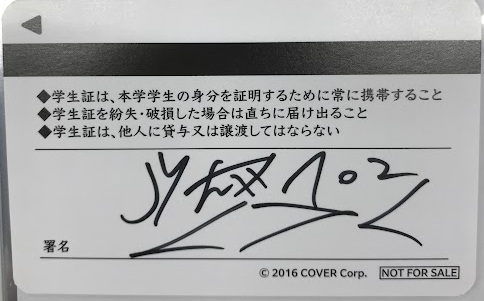 ◆学生証は、本学学生の身分を証明するために常に携帯すること
◆学生証を紛失・破損した場合は直ちに届け出ること
◆学生証は、他人に貸与又は譲渡してはならない
署名
© 2016 COVER Corp. NOT FOR SALE